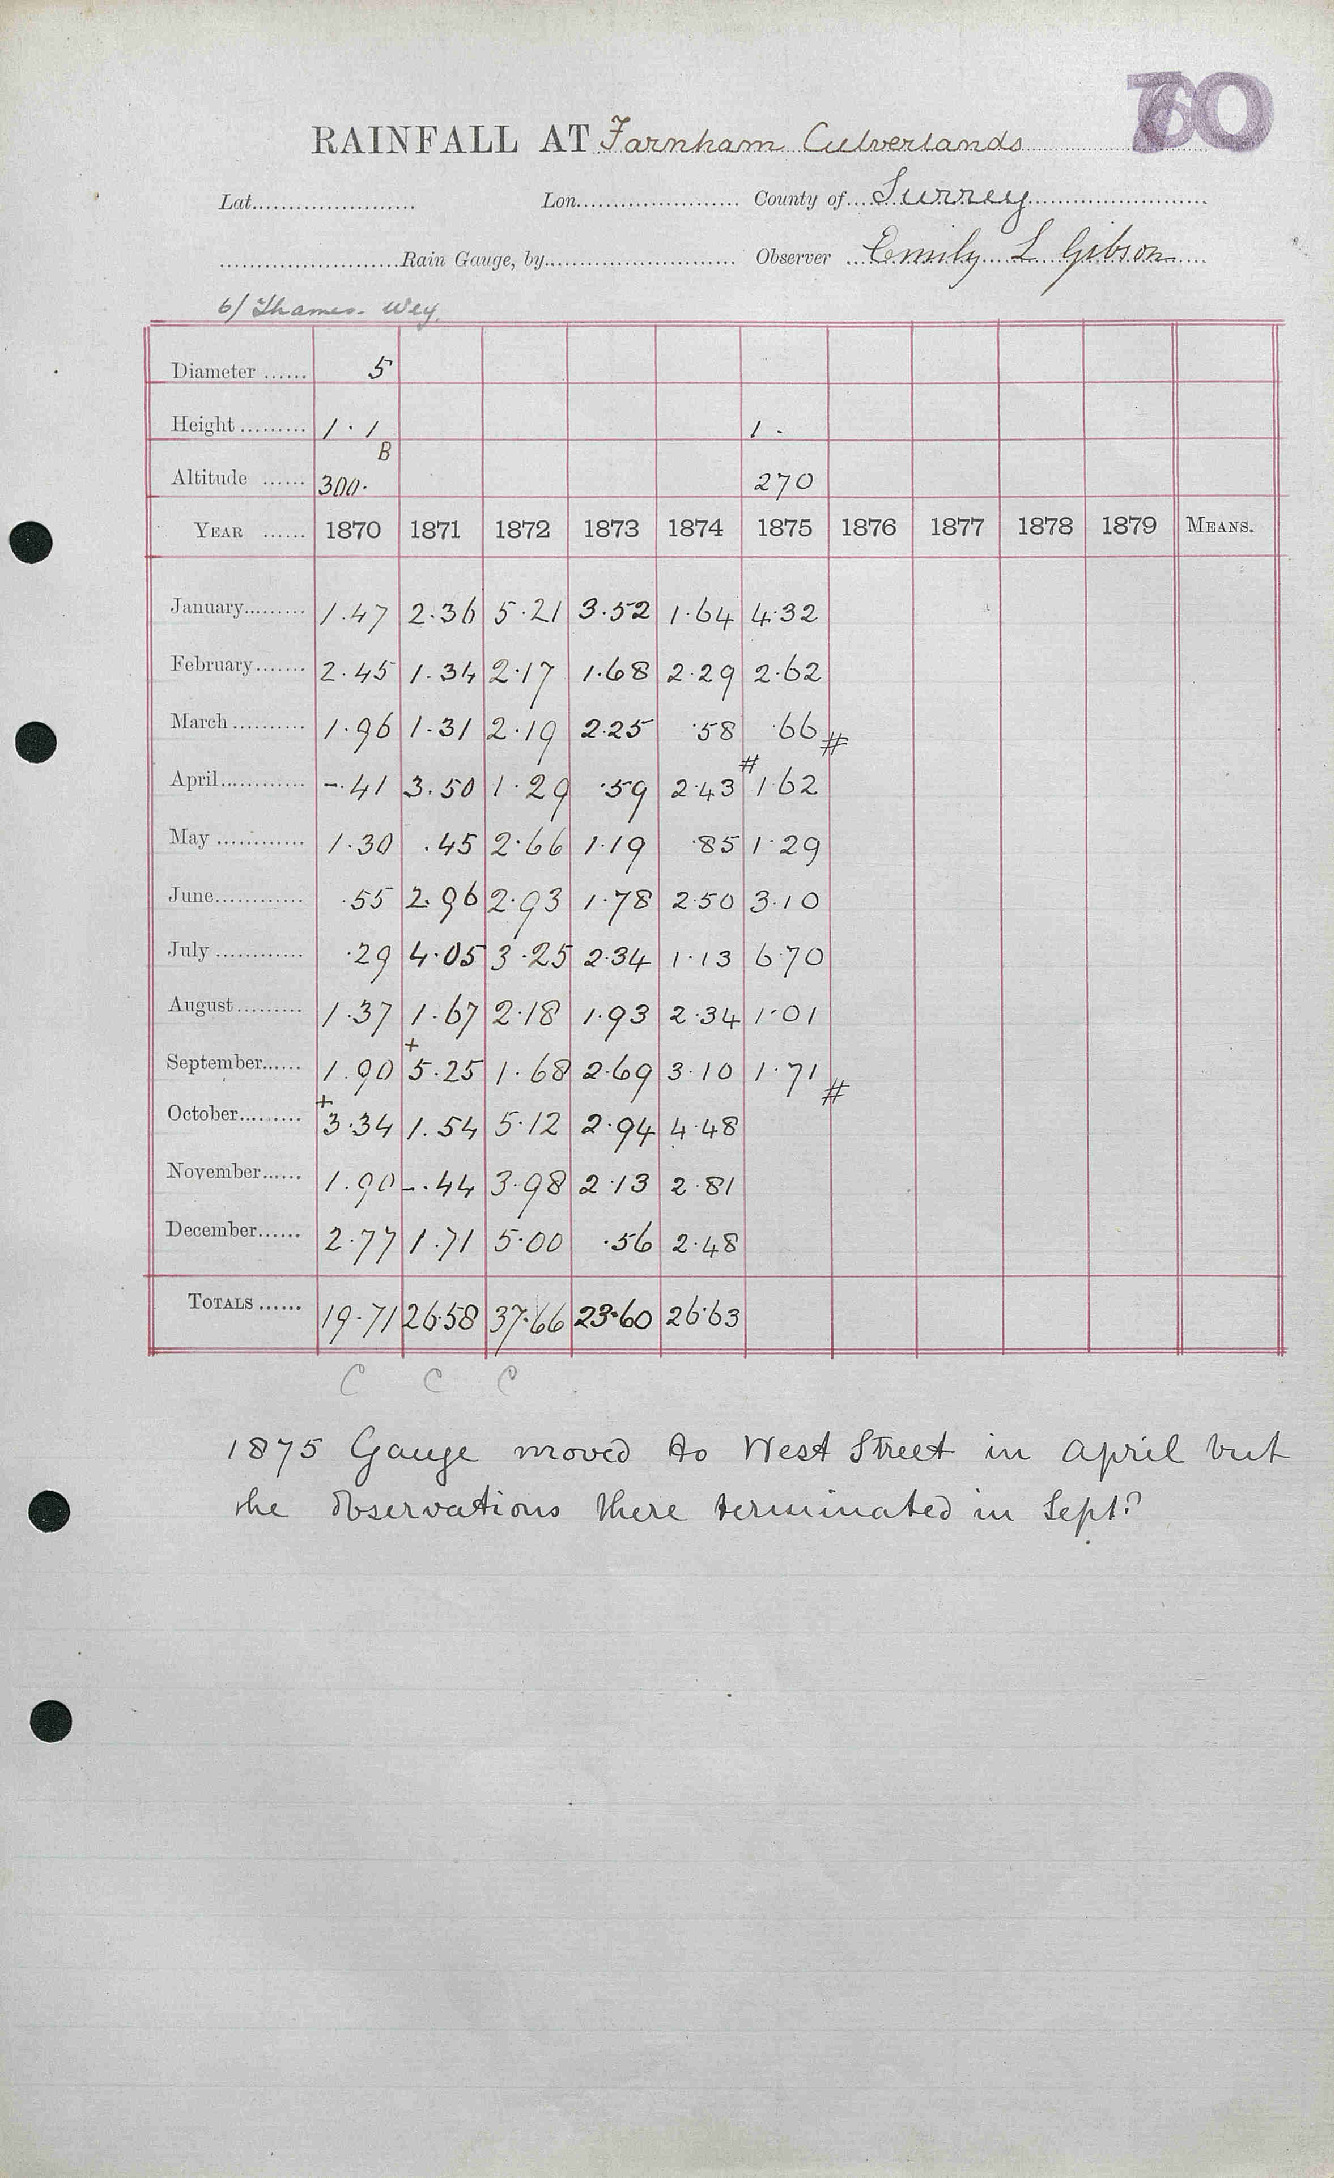 70
RAINFALL AT Farnham Culverlands
Lat...................... Lon....................... County of...Surrey.........................
.........................Rain Gauge, by........................... Observer ...Emily L Gibson.....
6/ Thames. Wey.
Diameter ...... 5
Height ......... 1.1 1.
B
Altitude ...... 300. 270
YEAR ...... 1870 1871 1872 1873 1874 1875 1876 1877 1878 1879 MEANS.
January......... 1.47 2.36 5.21 3.52 1.64 4.32
February....... 2.45 1.34 2.17 1.68 2.29 2.62
March .......... 1.96 1.31 2.19 2.25 .58 .66 #
April............ -.41 3.50 1.29 .59 2.43 # 1.62
May ............ 1.30 .45 2.66 1.19 .85 1.29
June............ .55 2.96 2.93 1.78 2.50 3.10
July ............ .29 4.05 3.25 2.34 1.13 6.70
August......... 1.37 1.67 2.18 1.93 2.34 1.01
September...... 1.90 + 5.25 1.68 2.69 3.10 1.71 #
October......... + 3.34 1.54 5.12 2.94 4.48
November...... 1.90 -.44 3.98 2.13 2.81
December...... 2.77 1.71 5.00 .56 2.48
TOTALS ...... 19.71 26.58 37.66 23.60 26.63
C C C
1875 Gauge moved to West Street in April but
the observations there terminated in Sept?